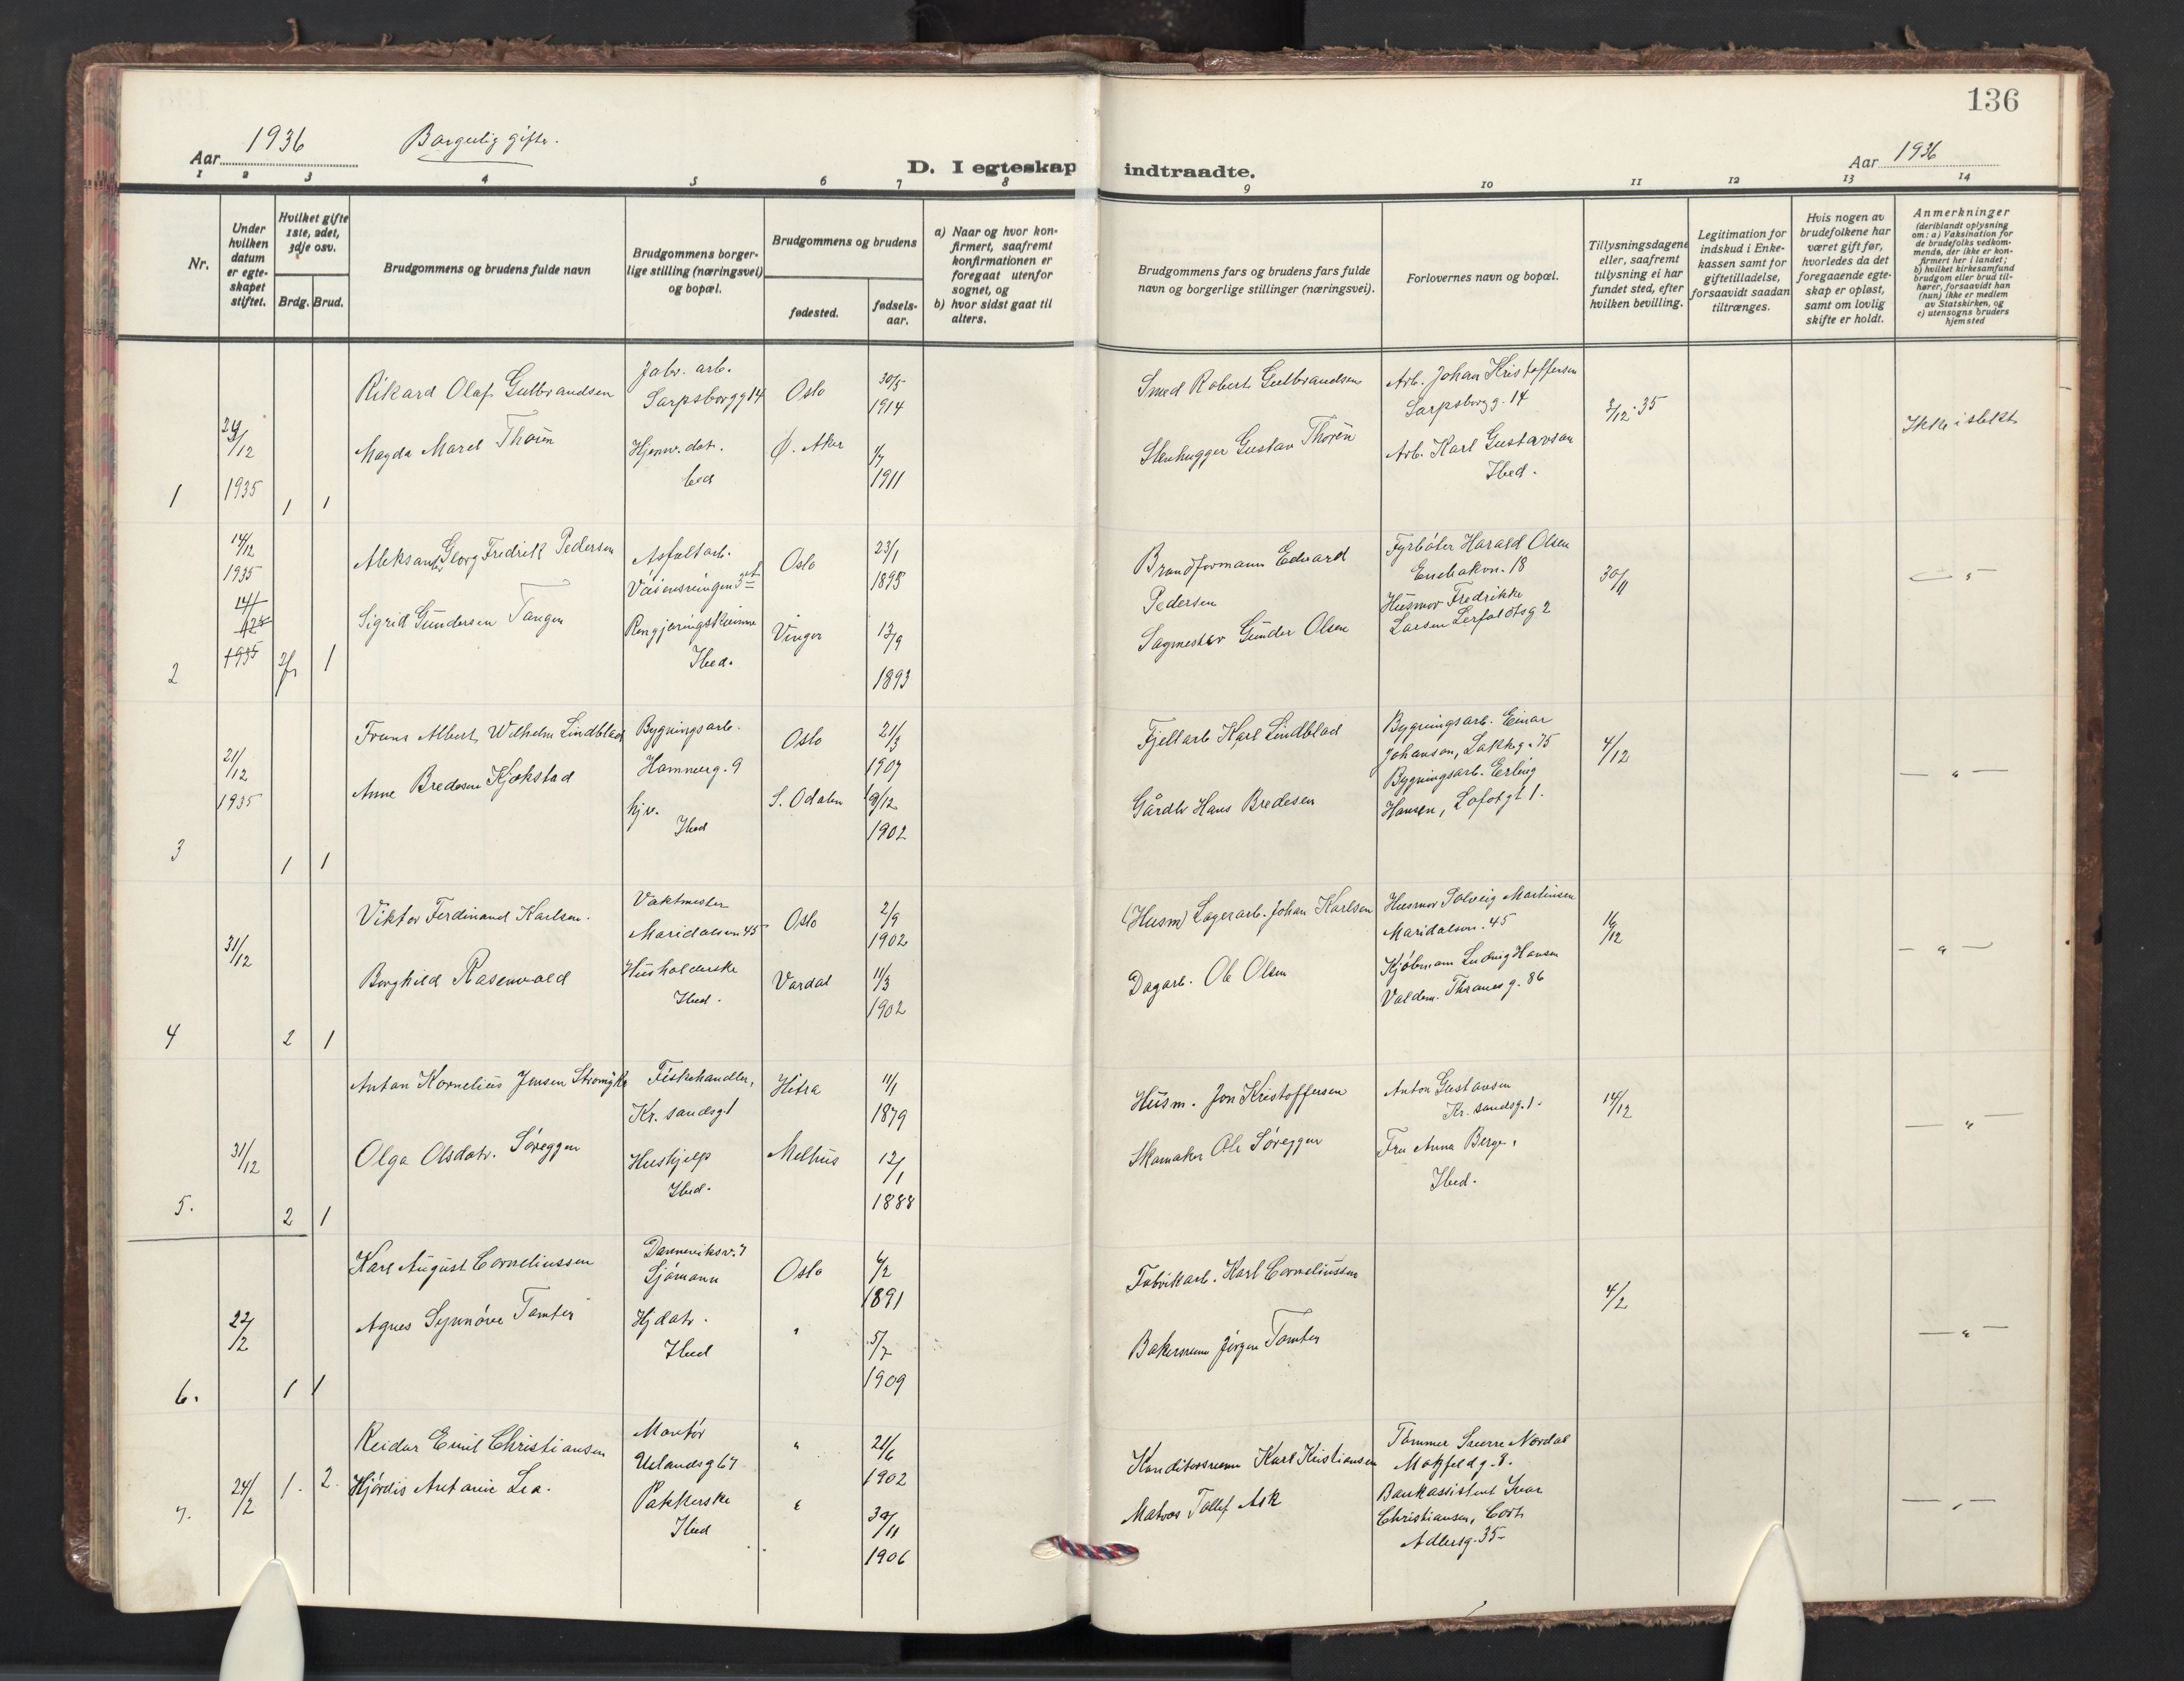 136
Aar 1936 Borgerlig gifte.
D. I egteskap indtraadte.
Aar 1936
1 2 3 4 5 6 7 8 9 10 11 12 13 14
Nr.
Under hvilken datum er egteskapet stiftet.
Hvilket gifte 1ste, 2det, 3dje osv.
Brdg. Brud.
Brudgommens og brudens fulde navn
Brudgommens borgerlige stilling (næringsvei) og bopæl.
Brudgommens og brudens
fødested.
fødselsaar.
a) Naar og hvor konfirmert, saafremt konfirmationen er foregaat utenfor sognet, og
b) hvor sidst gaat til alters.
Brudgommens fars og brudens fars fulde navn og borgerlige stillinger (næringsvei).
Forlovernes navn og bopæl.
Tillysningsdagene eller, saafremt tillysning ei har fundet sted, efter hvilken bevilling.
Legitimation for indskud i Enkekassen samt for giftetilladelse, forsaavidt saadan tiltrænges.
Hvis nogen av brudefolkene har været gift før, hvorledes da det foregaaende egteskap er opløst, samt om lovlig skifte er holdt.
Anmerkninger
(deriblandt oplysning om: a) Vaksination for de brudefolks vedkommende, der ikke er konfirmert her i landet;
b) hvilket kirkesamfund brudgom eller brud tilhører, forsaavidt han (hun) ikke er medlem av Statskirken, og
c) utensogns bruders hjemsted
Rikard Olaf Gulbrandsen
Fabr. arb.
Sarpsborgg 14
Oslo
30/5
1914
Smed Robert Gulbrandsen
Arb. Johan Kristoffersen
Sarpsborgg. 14
3/12-35
Ikke i slekt
/12
1935
Magda Marel Thorèn
Hjemv. dat.
Ø. Aker
1/7
1911
Stenhugger Gustav Thorèn
Arb. Karl Gustavson
Ibed.
1 1 1
14/12
1935
Aleksander Georg Fredrik Pedersen
Asfaltarb.
Oslo
23/1
1895
Brandformann Edvard
Pedersen
Fyrbøter Harald Olsen
Enebakkv. 18
30/11
14/12
1935
Sigrid Gundersen Tangen
Rengjøringskvinne
Ibed.
Vinger
13/9
1893
Sagmester Gunder Olsen
Husmor Fredrikke
Larsen Lerfaldtsg 2
2 1
Frans Albert Wilhelm Lindblad
Bygningsarb.
Hammerg. 9
Oslo
21/3
1907
Fjellarb Karl Lindblad
Bygningsarb. Einar
Johanson, Lakkg. 75
4/12
— " —
21/12
1935
Anne Bredesen Kjøkstad
hjv.
Ibed
S. Odalen
9/12
1902
Gårdbr Hans Bredesen
Bygningsarb. Erling
Hansen, Lofotgt 1.
3 1 1
Viktor Ferdinand Karlsen.
Vaktmester
Maridalsvn 45
Oslo
2/9
1902
(Husm) Lagerarb. Johan Karlsen
Husmor Solveig Martinsen
Maridalsvn. 45
16/12
— " —
31/12
Borghild Rasenvald
Husholderske
Ibed.
Vardal
11/3
1902
Dagarb. Ole Olsen
Kjøbmann Ludvig Hansen
Valdem. Thranes g. 86
4 2 1
Anton Kornelius Jensen
Fiskehandler,
Kr. sandsg. 1
Hitra
11/1
1879
Husm. Jon Kristoffersen
Anton Gustavsen
Kr. sandsg. 1.
14/12
— " —
31/12
Olga Olsdatr. Søreggen
Hushjelp
Ibed.
Melhus
12/1
1888
Skomaker Ole Søreggen
Fru Anna Berge,
Ibed.
5. 2 1
Karl August Corneliussen
Danneviksv. 7
Sjømann
Oslo
4/2
1891
Fabrikarb. Karl Corneliussen
4/2
22/2
Agnes Synnøve Tomter
Hjdatr.
Ibed
"
5/7
1909
Bakersvenn Jørgen Tomter
— " —
6. 1 1
Reidar Emil Christiansen
Montør
Uelandsg 67
"
21/6
1902
Konditorsvenn Karl Kristiansen
Tømmer Sverre Nordal
Motzfeldg. 8.
24/2 1. 2.
Hjørdis Antonie Lea.
Pakkerske
Ibed
"
30/11
1906
Matros Tollef Ask
Bankassistent Ivar
Christiansen, Cort
Adlersg. 35
— " —
7.